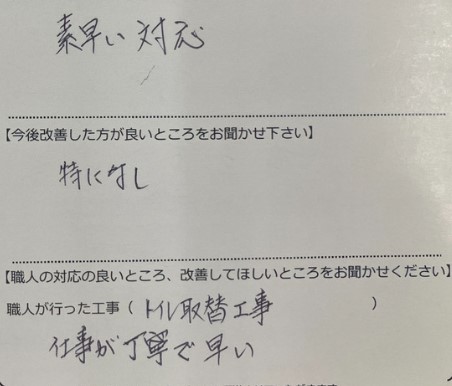 素早い対応
【今後改善した方が良いところをお聞かせ下さい】
特になし
【職人の対応の良いところ、改善してほしいところをお聞かせください】
職人が行った工事（トイレ取替工事）
仕事が丁寧で早い